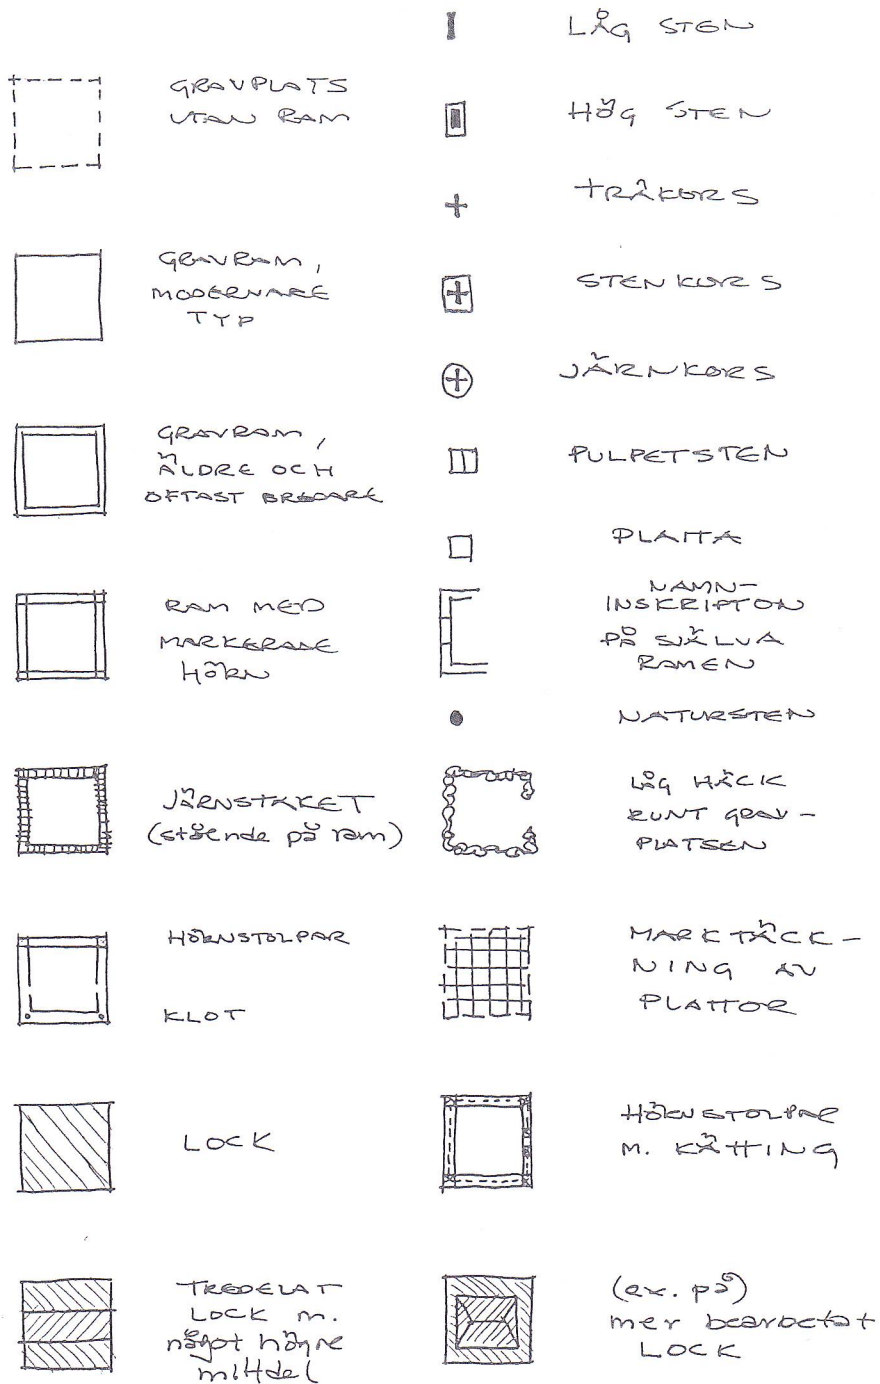 GRAVPLATS
UTAN RAM
GRAVRAM,
MODERNARE
TYP
GRAVRAM,
ÄLDRE OCH
OFTAST BREDARE
RAM MED
MARKERADE
HÖRN
JÄRNSTAKET
(stående på ram)
HÖRNSTOLPAR
KLOT
LOCK
TREDELAT
LOCK m.
något högre
mittdel
LÅG STEN
HÖG STEN
TRÄKORS
STENKORS
JÄRNKORS
PULPETSTEN
PLATTA
NAMN-
INSKRIPTON
PÅ SJÄLVA
RAMEN
NATURSTEN
LÅG HÄCK
RUNT GRAV-
PLATSEN
MARKTÄCK-
NING AV
PLATTOR
HÖRNSTOLPAR
M. KÄTTING
(ex. på)
mer bearbetat
LOCK